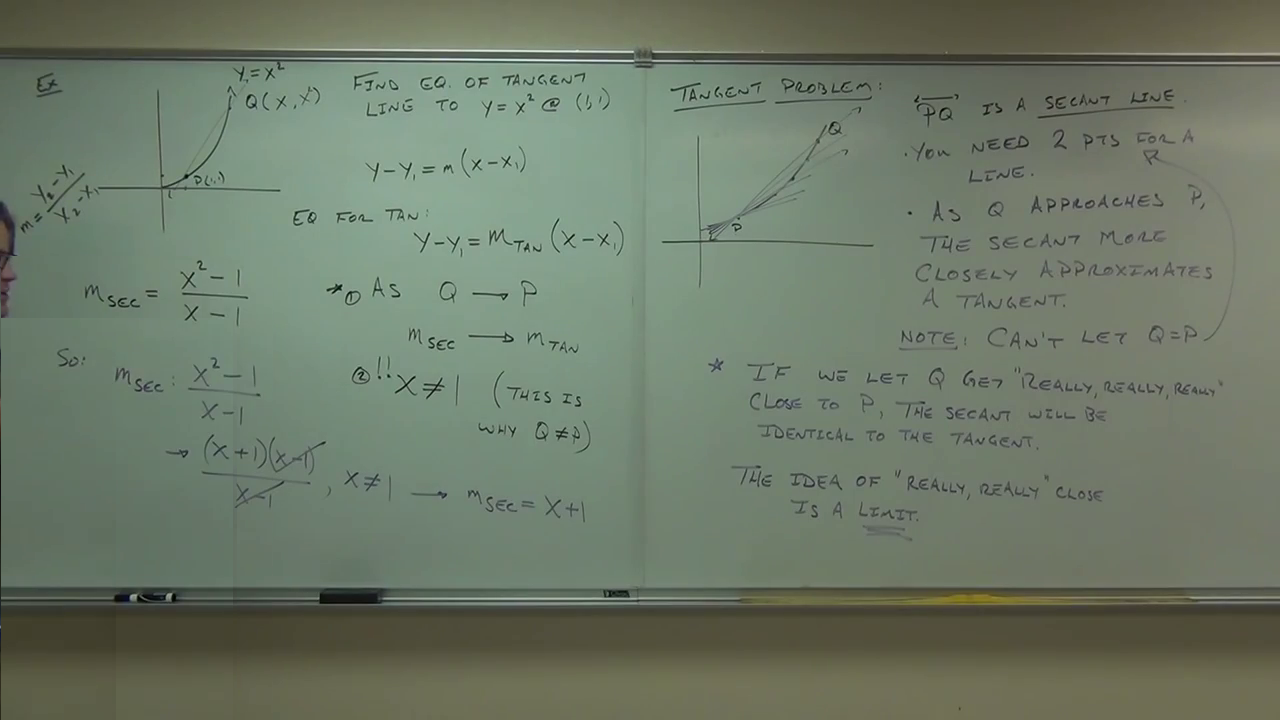 Ex
y = x²
Q(x, x²)
P(1,1)
m = y₂-y₁ / x₂-x₁
FIND EQ. OF TANGENT
LINE TO y = x² @ (1,1)
y-y₁ = m(x-x₁)
EQ FOR TAN:
y-y₁ = m_TAN (x-x₁)
m_SEC = x²-1 / x-1
* ① AS Q → P
m_SEC → m_TAN
② !! x ≠ 1 (THIS IS
WHY Q≠P)
SO:
m_SEC: x²-1 / x-1
→ (x+1)(x-1) / x-1 , x ≠ 1 → m_SEC = x+1
TANGENT PROBLEM:
Q
P
PQ IS A SECANT LINE.
· YOU NEED 2 PTS FOR A
LINE.
· AS Q APPROACHES P,
THE SECANT MORE
CLOSELY APPROXIMATES
A TANGENT.
NOTE: CAN'T LET Q=P
* IF WE LET Q GET "REALLY, REALLY, REALLY"
CLOSE TO P, THE SECANT WILL BE
IDENTICAL TO THE TANGENT.
THE IDEA OF "REALLY, REALLY" CLOSE
IS A LIMIT.